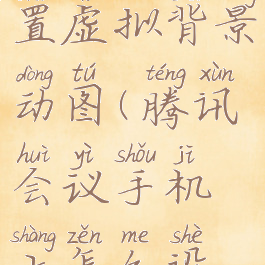 置虚拟背景
dòng tú téng xùn
动图(腾讯
huì yì shǒu jī
会议手机
shàng zěn me shè
上怎么设